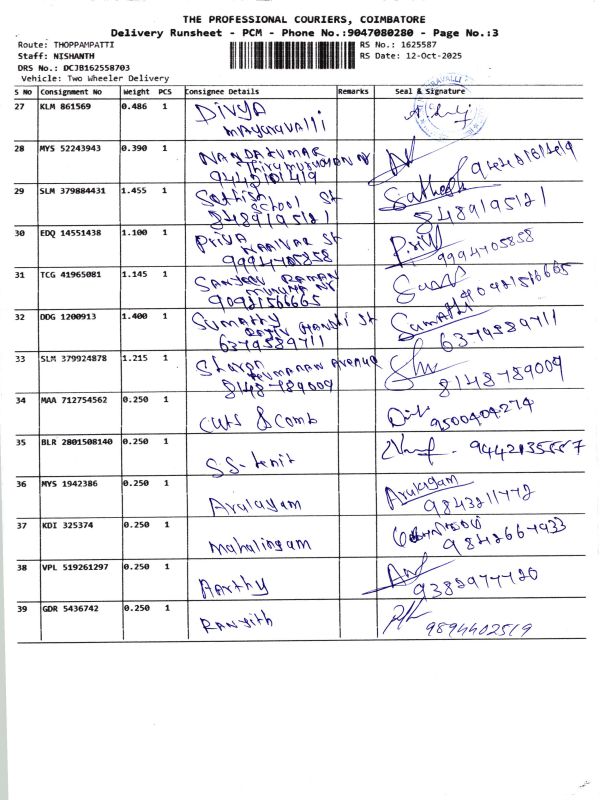 THE PROFESSIONAL COURIERS, COIMBATORE
Delivery Runsheet - PCM - Phone No.:9047080280 - Page No.:3
Route: THOPPAMPATTI RS No.: 1625587
Staff: NISHANTH RS Date: 12-Oct-2025
DRS No.: DCJB162558703
Vehicle: Two Wheeler Delivery
S NO Consignment No Weight PCS Consignee Details Remarks Seal & Signature
27 KLM 861569 0.486 1 Divya
mayuravalli
28 MYS 52243943 0.390 1 NANDAKUMAR
Thirumurugan Nr
9442101419
29 SLM 379884431 1.455 1 Sathish Sathish
School St
8489195121 8489195121
30 EDQ 14551438 1.100 1 Priya
NAAIVAR St
9994705858 9994705858
31 TCG 41965081 1.145 1 Sanjeev RAMAN
90921566665
32 DDG 1200913 1.400 1 Sumathy Sumathi
RAJIV GANDHI St
6379589711 6379589711
33 SLM 379924878 1.215 1 Sharon
Avenue
8148789009 8148789009
34 MAA 712754562 0.250 1 Cuts & Comb
9500404274
35 BLR 2801508140 0.250 1 SS-tenit
36 MYS 1942386 0.250 1 Arulagam Arulagam
9843211772
37 KDI 325374 0.250 1 Mahalingam
9842667933
38 VPL 519261297 0.250 1 Aarthy
9382977720
39 GDR 5436742 0.250 1 Ranjith
9894402519